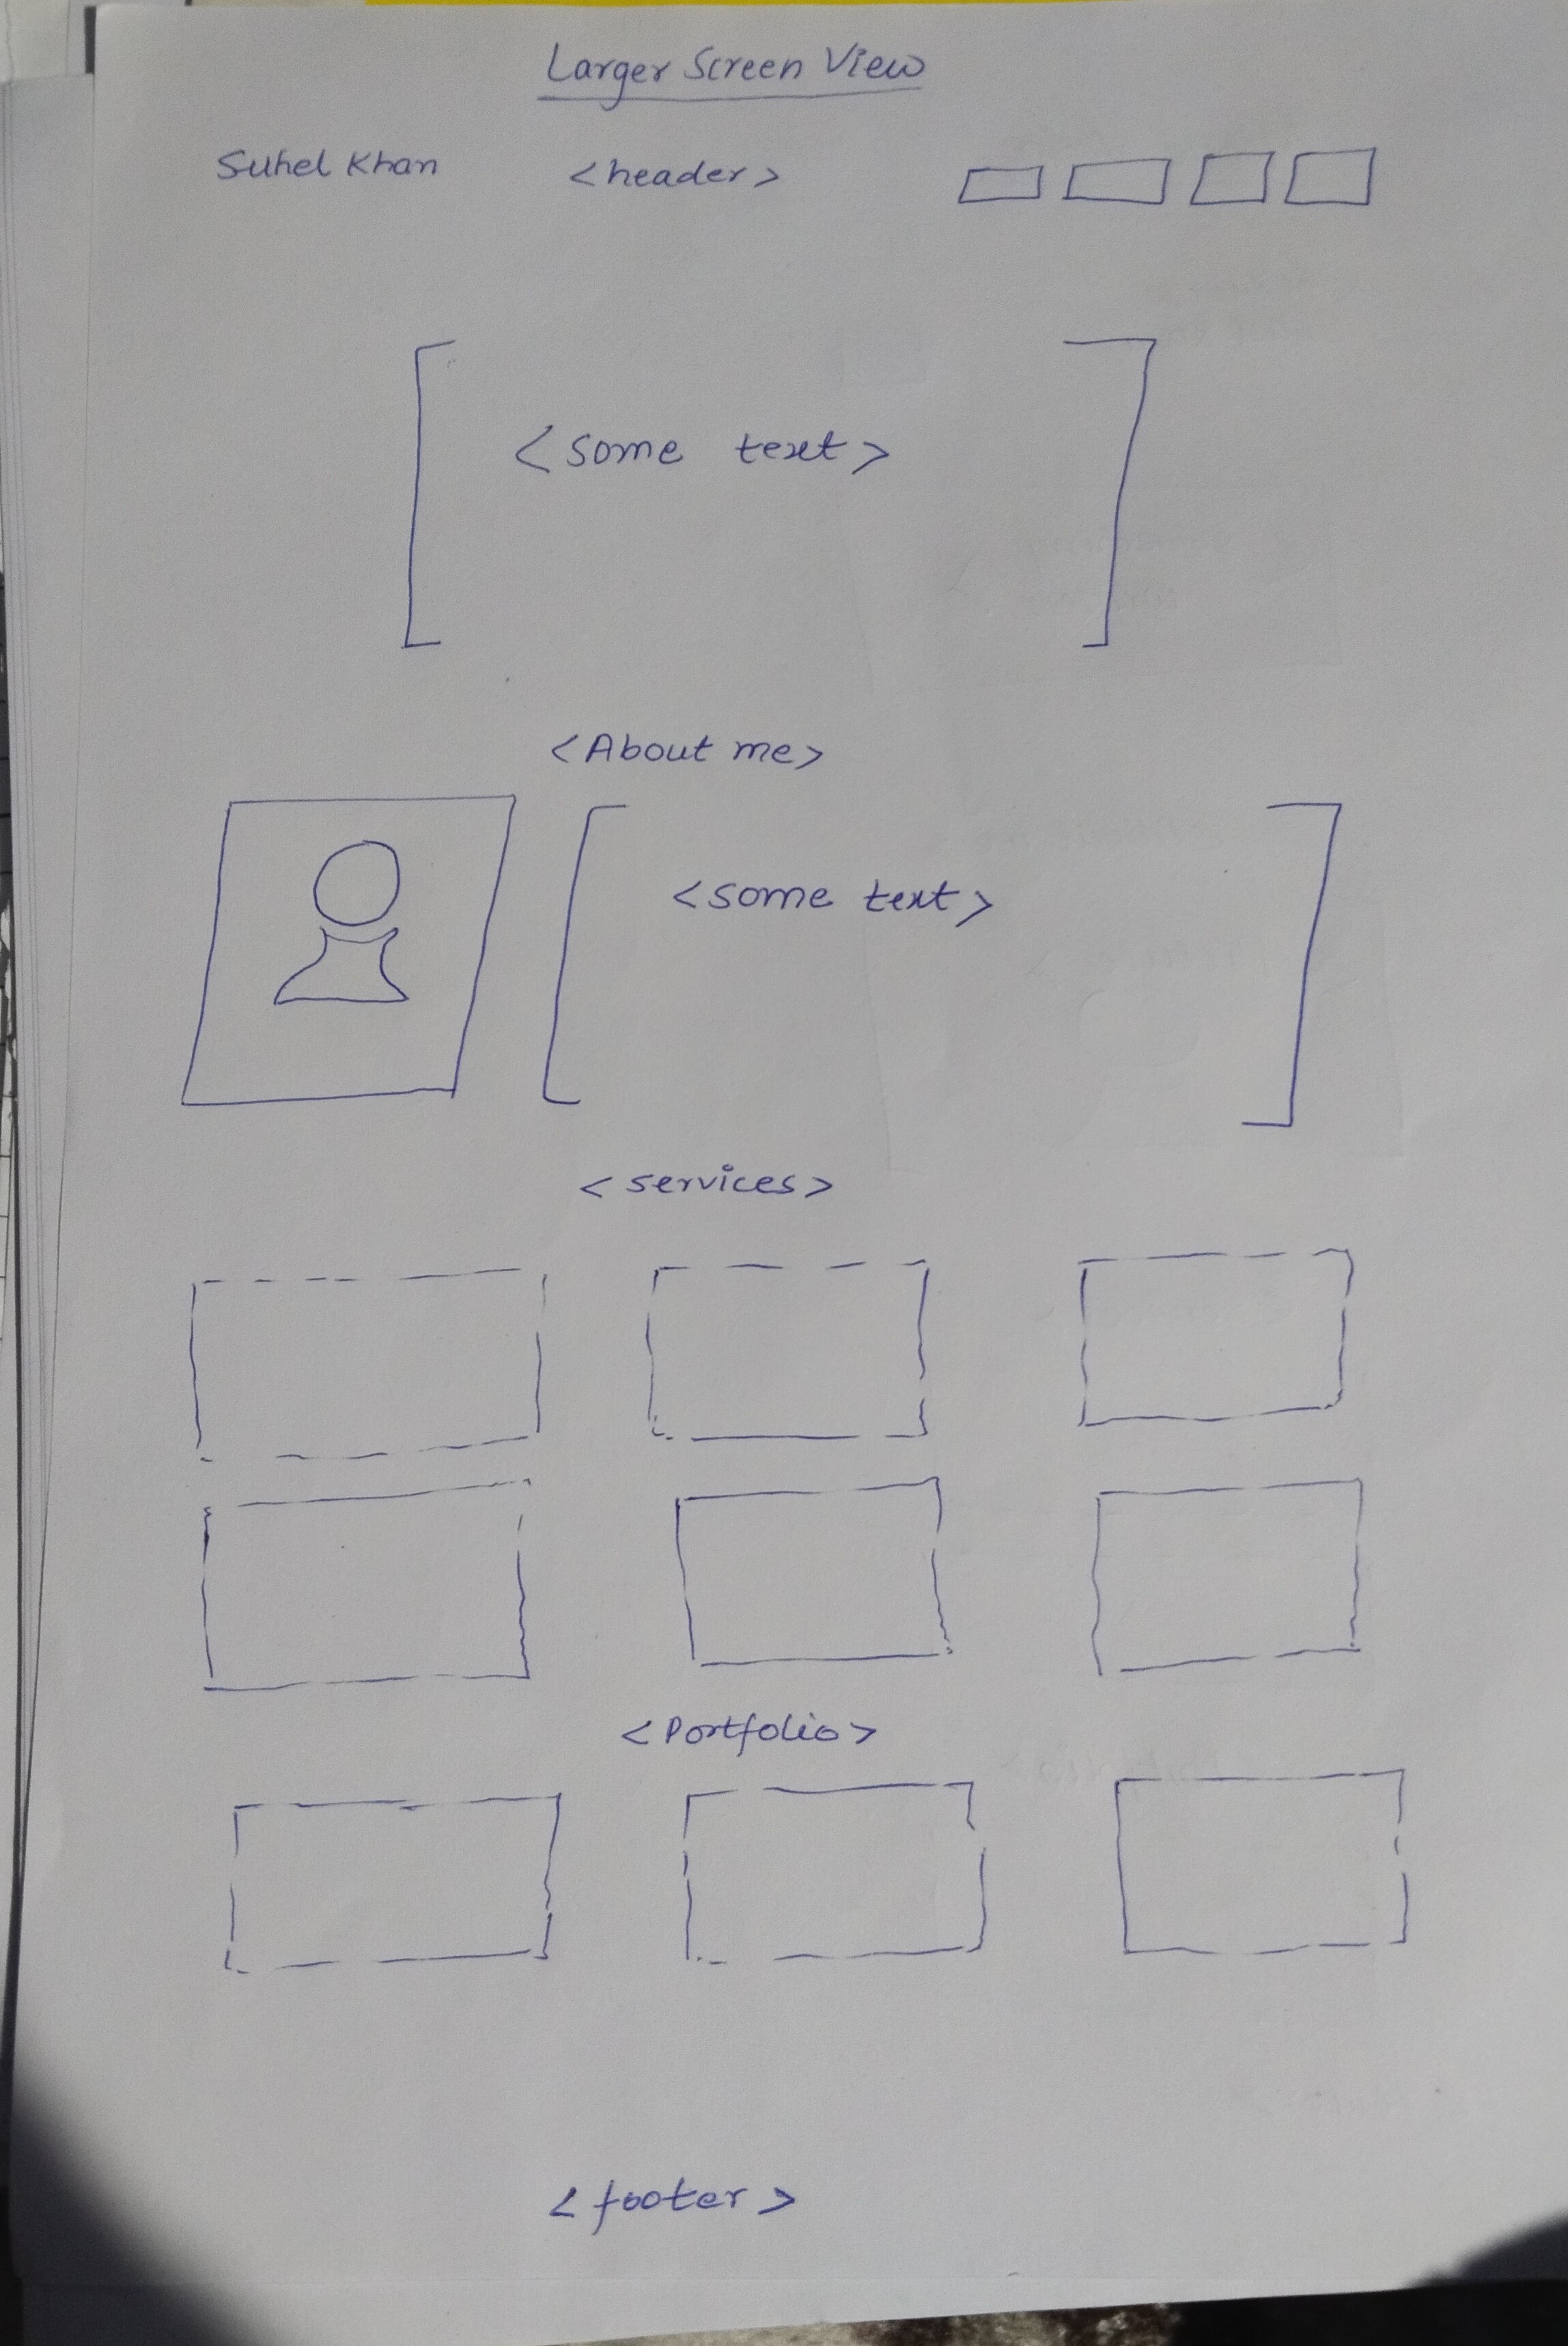 Larger Screen View
Suhel Khan <header>
<some text>
<About me>
<some text>
<services>
<Portfolio>
<footer>